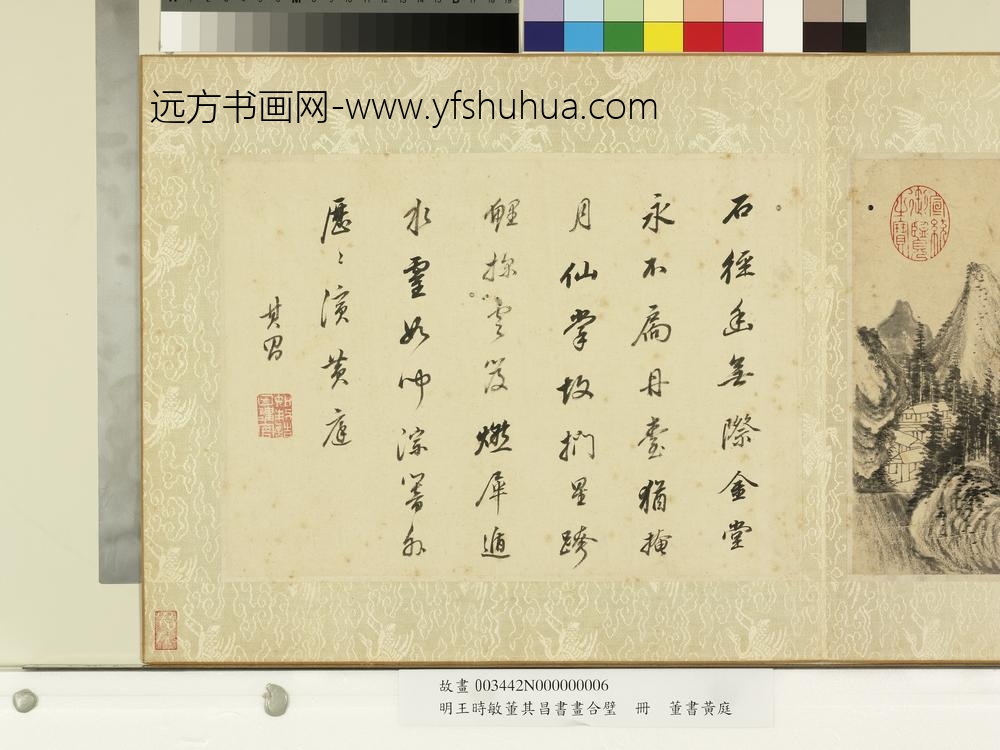 远方书画网-www.yfshuhua.com
石徑幽無際金堂
永不扃丹臺猶掩
月仙掌故捫星跨
鯉探雲笈燃犀遁
水靈如外
歷〻演黃庭
其昌
宣統御覽之寶
故畫 003442N000000006
明王時敏董其昌書畫合璧 冊 董書黃庭